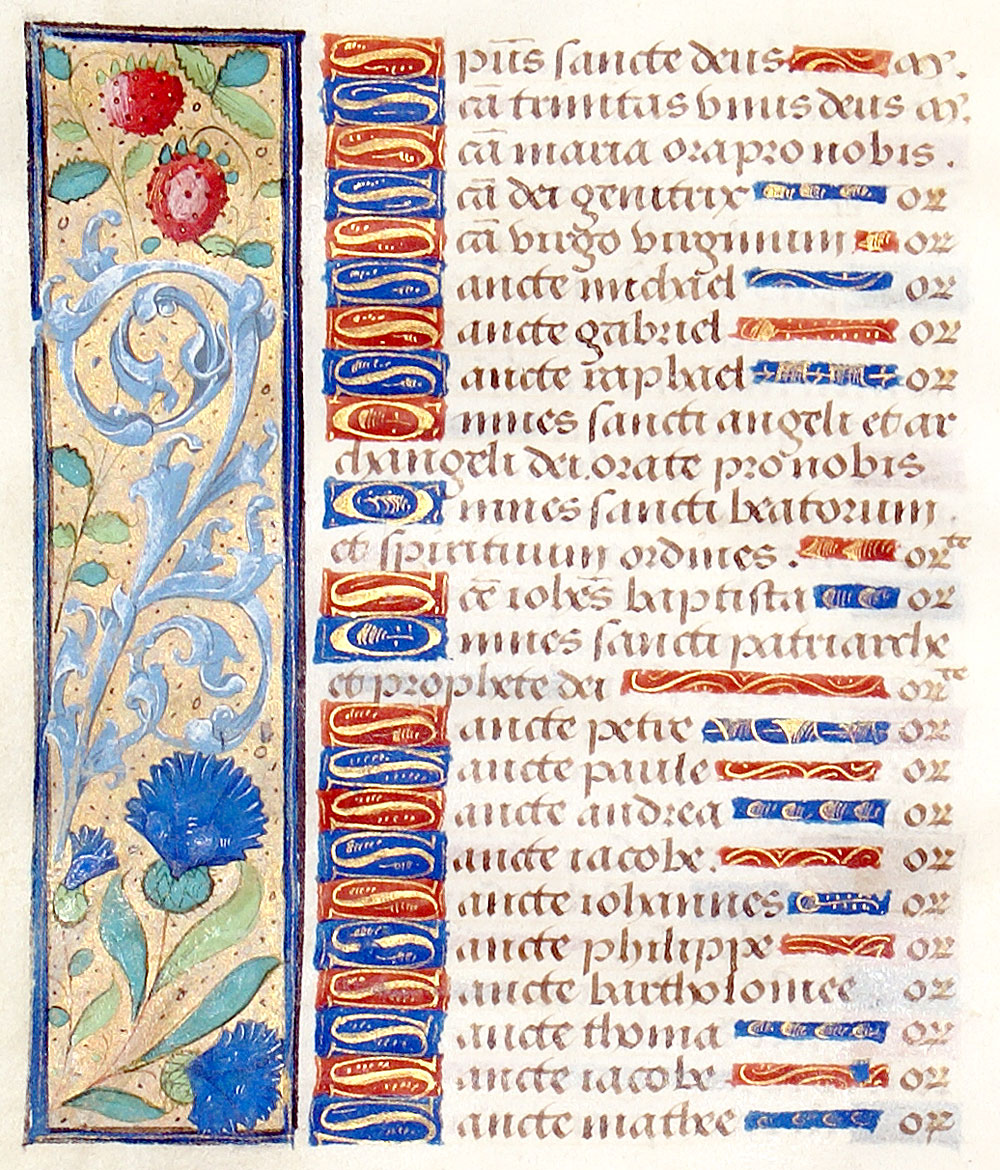 Spūs sancte deus m̄.
Scā trinitas vnus deus m̄.
Scā maria ora pro nobis.
Scā dei genitrix or
Scā virgo virginum or
Sancte michael or
Sancte gabriel or
Sancte raphael or
Omnes sancti angeli et ar
changeli dei. orate pro nobis
Omnes sancti beatorum.
et spirituum ordines. or te
Scē iohēs baptista or
Omnes sancti patriarche
et prophete dei or te
Sancte petre or
Sancte paule or
Sancte andrea or
Sancte iacobe. or
Sancte iohannes or
Sancte philippe or
Sancte bartholomee or
Sancte thoma or
Sancte iacobe or
Sancte mathee or